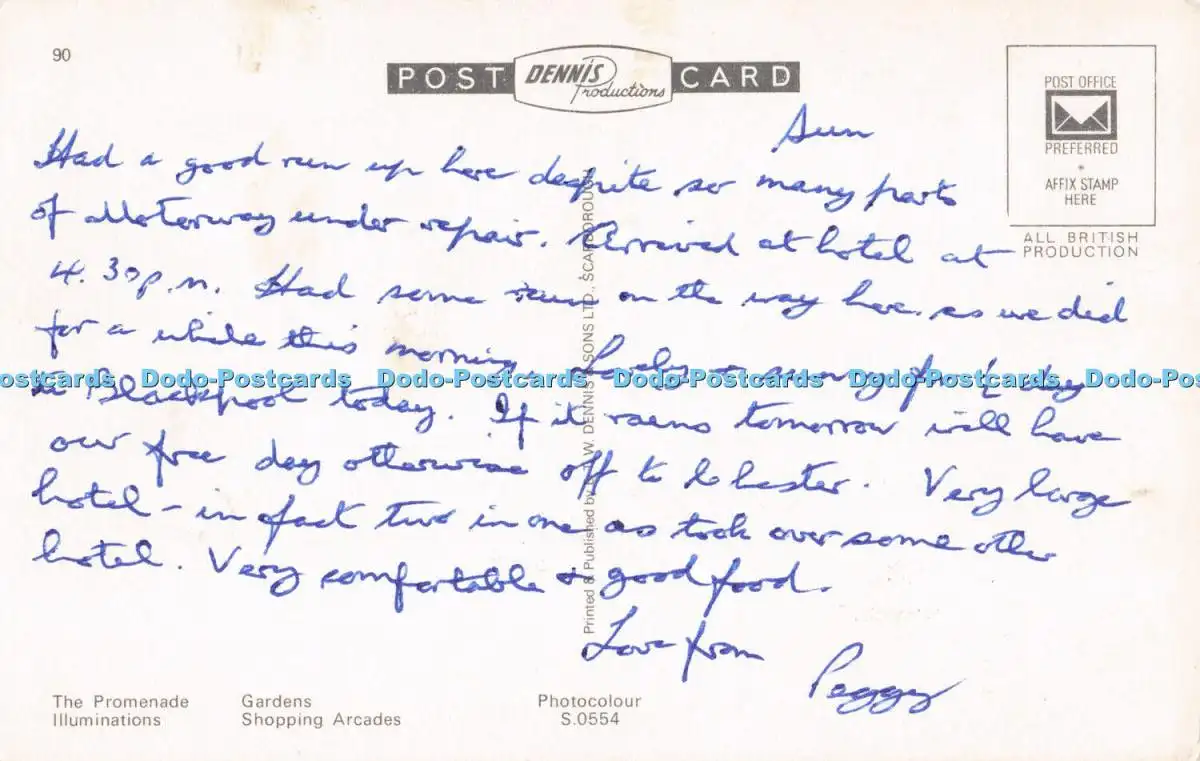 90
POST DENNIS Productions CARD
POST OFFICE
PREFERRED
AFFIX STAMP
HERE
ALL BRITISH
PRODUCTION
Sun
Had a good run up here despite so many parts
of Motorway under repair. Arrived at hotel at
4.30p.m. Had some rain on the way here as we did
for a while this morning.
Dodo-Postcards Dodo-Postcards Dodo-Postcards Dodo-Postcards
in Blackpool today. If it rains tomorrow will have
our free day otherwise off to Chester. Very large
hotel - in fact two in one as took over some other
hotel. Very comfortable & good food.
Love from
Peggy
Printed & Published by W. DENNIS & SONS LTD., SCARBOROUGH
The Promenade
Illuminations
Gardens
Shopping Arcades
Photocolour
S.0554